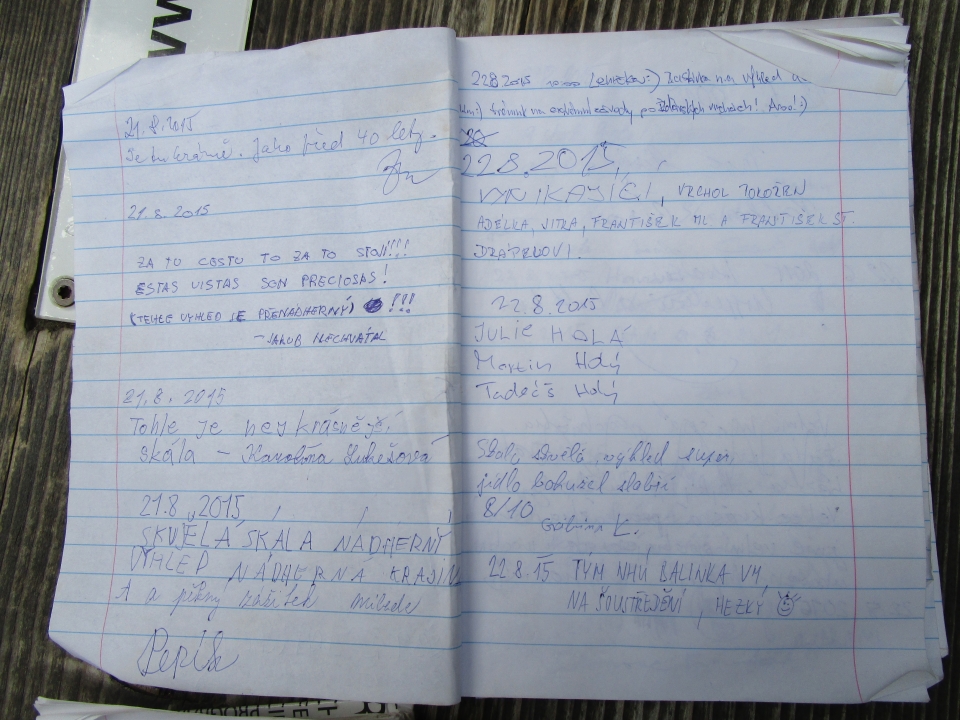 21.8.2015
Je tu krásně. Jako před 40 lety.
21.8.2015
ZA TU CESTU TO ZA TO STOJÍ!!!
ESTAS VISTAS SON PRECIOSAS!
(TEHLE VÝHLED JE PŘENÁDHERNÝ) !!!
– JAKUB NECHVÁTAL
21.8.2015
Tohle je nejkrásnější
skála – Karolína Lukešová
21.8.2015
SKVĚLÁ SKÁLA NÁDHERNÝ
VÝHLED NÁDHERNÁ KRAJIN
A a pěkný zážitek
Pepík
22.8.2015 10:00 :) na výhled a
po výletech! Ahoj! :)
22.8.2015
VYNIKAJÍCÍ, VRCHOL POKOŘEN
ADÉLKA, JITKA, FRANTIŠEK ML. A FRANTIŠEK ST.
DRÁPELOVI.
22.8.2015
JULIE HOLÁ
Martin Holý
Tadeáš Holý
výhled super,
jídlo bohužel slabší
8/10
K.
22.8.15 TÝM NHÚ BALINKA VM,
NA SOUSTŘEDĚNÍ, HEZKÝ